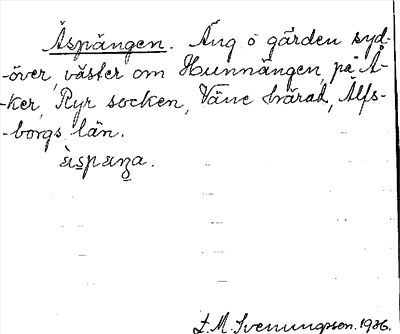 Äspängen. Äng å gården syd-
-över, väster om Hunnängen, på Å-
-ker, Ryr socken, Väne härad, Älfs-
-borgs län.
L. M. Svenungsson. 1926.